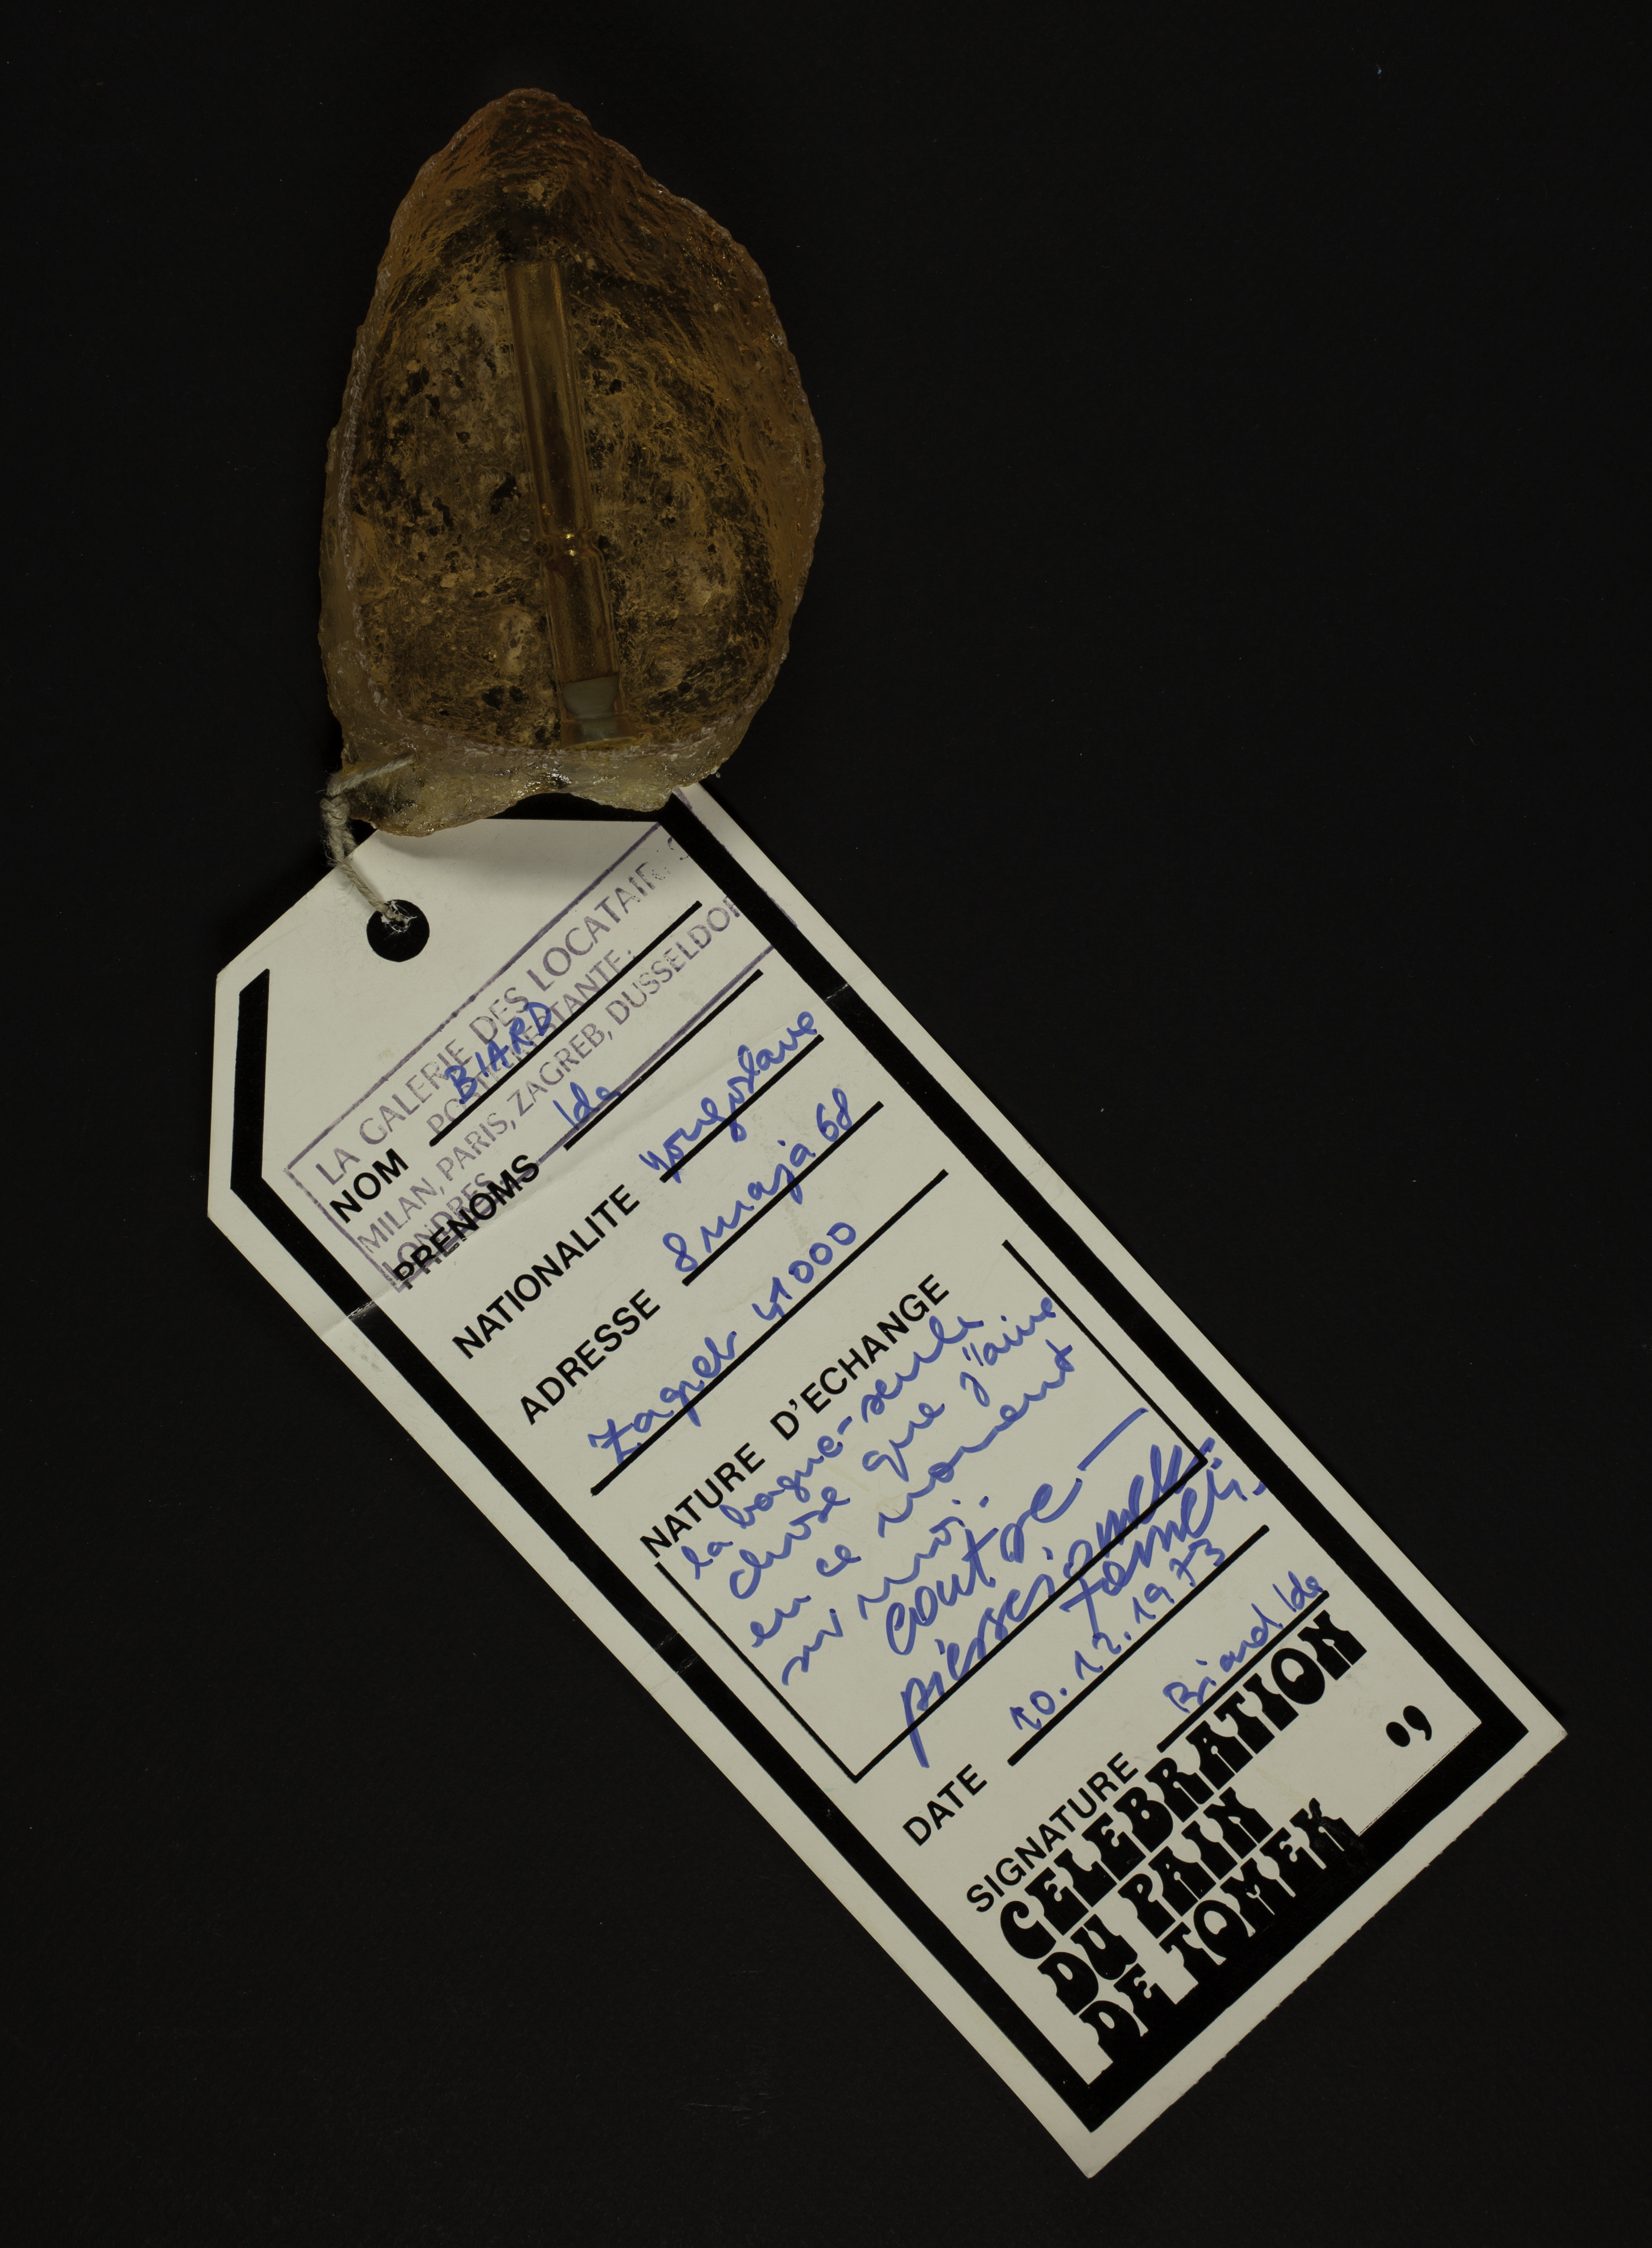 LA GALERIE DES LOCATAIRES
POSTE RESTANTE:
MILAN, PARIS, ZAGREB, DUSSELDOR
LONDRES
NOM BIARD
PRENOMS Ida
NATIONALITE Yougoslave
ADRESSE 8 maja 68
Zagreb 41000
NATURE D'ECHANGE
la bague-seule
chose que j'aime
en ce moment
sur moi.
contre —
DATE 10.12.1973
SIGNATURE Biard Ida
CELEBRATION
DU PAIN
DE TOMEK
09